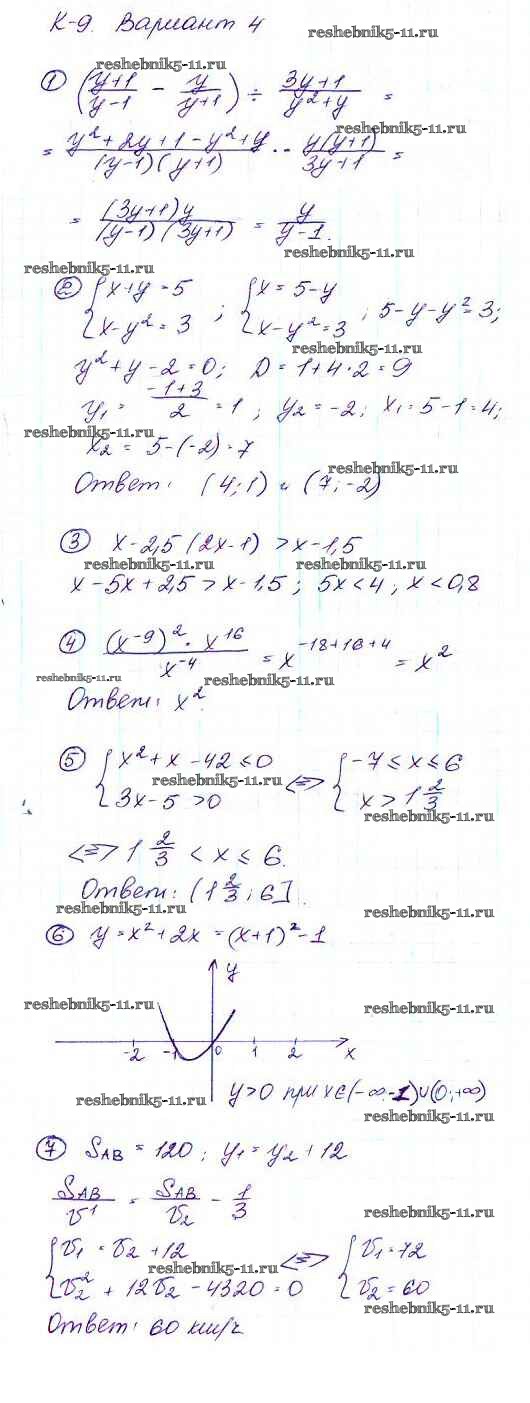 К-9. Вариант 4
reshebnik5-11.ru
reshebnik5-11.ru
① ((y+1)/(y-1) - y/(y+1)) ÷ (3y+1)/(y²+y) =
reshebnik5-11.ru
= (y²+2y+1-y²+y)/((y-1)(y+1)) · y(y+1)/(3y+1) =
= (3y+1)y/((y-1)(3y+1)) = y/(y-1).
reshebnik5-11.ru
reshebnik5-11.ru
② {x+y=5; x-y²=3 ; {x=5-y; x-y²=3 ; 5-y-y²=3;
reshebnik5-11.ru
y²+y-2=0; D=1+4·2=9
y₁ = (-1+3)/2 = 1; y₂=-2; x₁=5-1=4;
reshebnik5-11.ru
x₂ = 5-(-2)=7
reshebnik5-11.ru
Ответ: (4;1) и (7;-2)
③ x-2,5(2x-1)>x-1,5
reshebnik5-11.ru reshebnik5-11.ru
x-5x+2,5>x-1,5; 5x<4; x<0,8
④ ((x⁻⁹)²·x¹⁶)/x⁻⁴ = x⁻¹⁸⁺¹⁶⁺⁴ = x²
reshebnik5-11.ru reshebnik5-11.ru
Ответ: x².
⑤ {x²+x-42≤0; 3x-5>0 <=> {-7≤x≤6; x>1 2/3
reshebnik5-11.ru
<=> 1 2/3 < x ≤ 6.
Ответ: (1 2/3; 6].
reshebnik5-11.ru reshebnik5-11.ru
⑥ y=x²+2x=(x+1)²-1
y
reshebnik5-11.ru reshebnik5-11.ru
-2 -1 0 1 2 x
y>0 при x∈(-∞-1)∪(0;+∞)
reshebnik5-11.ru
reshebnik5-11.ru
⑦ S_AB = 120; y₁=y₂+12
S_AB/v¹ = S_AB/v₂ - 1/3
reshebnik5-11.ru
{v₁=v₂+12; v₂²+12v₂-4320=0 <=> {v₁=72; v₂=60
reshebnik5-11.ru
reshebnik5-11.ru
Ответ: 60 км/ч